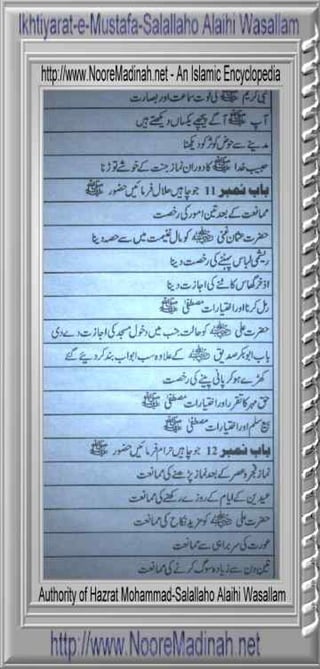 Ikhtiyarat-e-Mustafa-Salallaho Alaihi Wasallam
http://www.NooreMadinah.net - An Islamic Encyclopedia
نبی کریم ﷺ کی قوت سماعت اور بصارت
آپ ﷺ آگے پیچھے یکساں دیکھتے ہیں
مدینے سے حوض کوثر کو دیکھنا
حبیب خدا ﷺ کا دوران نماز جنت کے خوشے توڑنا
باب نمبر 11 جو چاہیں حلال فرمائیں حضور ﷺ
ممانعت کے بعد تین امور کی رخصت
حضرت عثمان غنی کو مال غنیمت میں سے حصہ دینا
ریشمی لباس پہننے کی رخصت دینا
اذخر گھاس کاٹنے کی اجازت دینا
رمل کرنا اور اختیارات مصطفیٰ ﷺ
حضرت علی کو حالت جنب میں دخول مسجد کی اجازت دے دی
باب ابوبکر صدیق کے علاوہ سب ابواب بند کر دیئے گئے
کھڑے ہو کر پانی پینے کی رخصت
حق مہر کا تقرر اور اختیارات مصطفیٰ ﷺ
بیع سلم اور اختیارات مصطفیٰ ﷺ
باب نمبر 12 جو چاہیں حرام فرمائیں حضور ﷺ
نماز فجر و عصر کے بعد نماز پڑھنے کی ممانعت
عیدین کے ایام کے روزے رکھنے کی ممانعت
حضرت علی کو مزید نکاح کی ممانعت
عورت کی سربراہی سے ممانعت
تین دن سے زیادہ سوگ کرنے کی ممانعت
Authority of Hazrat Mohammad-Salallaho Alaihi Wasallam
http://www.NooreMadinah.net